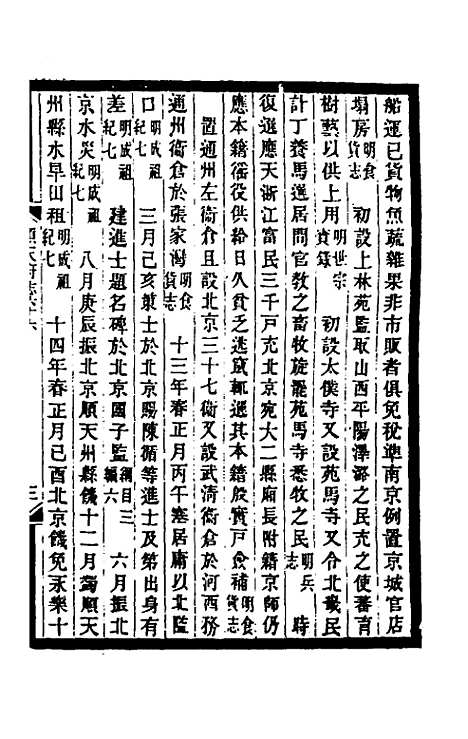 船運已貨物魚蔬雜果非市販者俱免稅準南京例置京城官店
塌房明食貨志　初設上林苑監取山西平陽澤潞之民充之使蕃育
樹藝以供上用明世宗實錄　初設太僕寺又設苑馬寺又令北畿民
計丁養馬選居閒官教之畜牧旋罷苑馬寺悉牧之民明兵志　時
復選應天浙江富民三千戸充北京宛大二縣廂長附籍京師仍
應本籍徭役供給日久貧乏逃竄輒選其本籍殷實戸僉補明食貨志
置通州左衛倉且設北京三十七衛又設武清衛倉於河西務
通州衛倉於張家灣明食貨志　十三年春正月丙午塞居庸以北隘
口明成祖紀七　三月己亥策士於北京賜陳循等進士及第出身有
差明成祖紀七　建進士題名碑於北京國子監綱目三編六　六月振北
京水災明成祖紀七　八月庚辰振北京順天州縣饑十二月蠲順天
州縣水旱田租明成祖紀七　十四年春正月己酉北京饑免永樂十
順天府志六十六
三